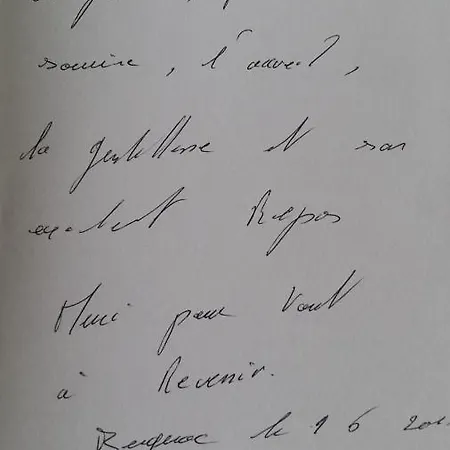 sourire, l'accueil,
la gentillesse et son
excellent Repas
Merci pour tout
à Revenir.
Bergerac le 9 6